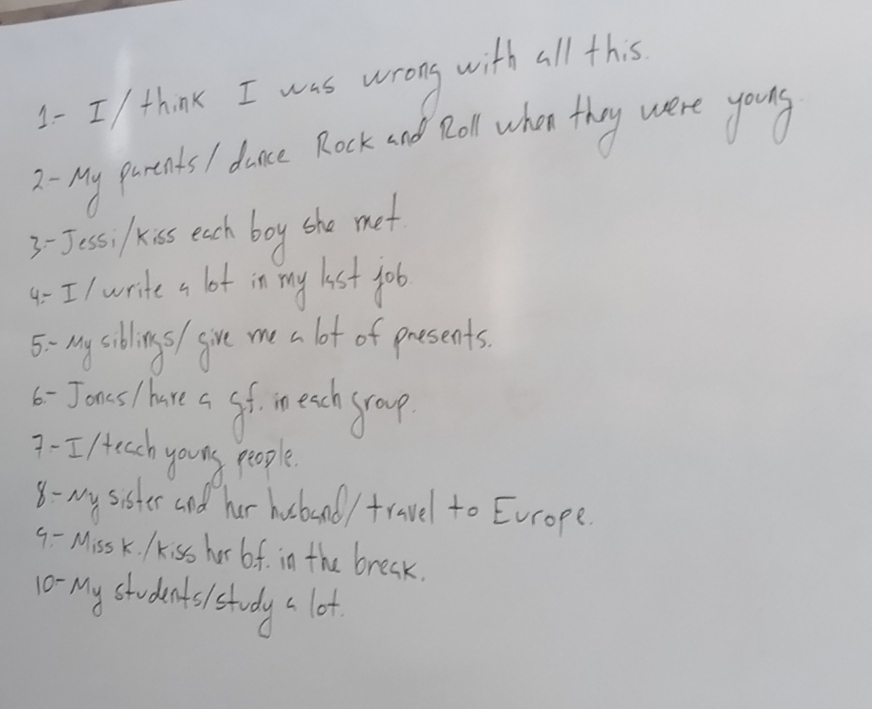 1.- I/think I was wrong with all this.
2- My parents/dance Rock and Roll when they were young
3.- Jessi/kiss each boy she met.
4.- I/write a lot in my last job.
5.- My siblings/give me a lot of presents.
6.- Jonas/have a gf. in each group.
7-I/teach young people.
8-My sister and her husband/travel to Europe.
9.- Miss K./kiss her b.f. in the break.
10-My students/study a lot.